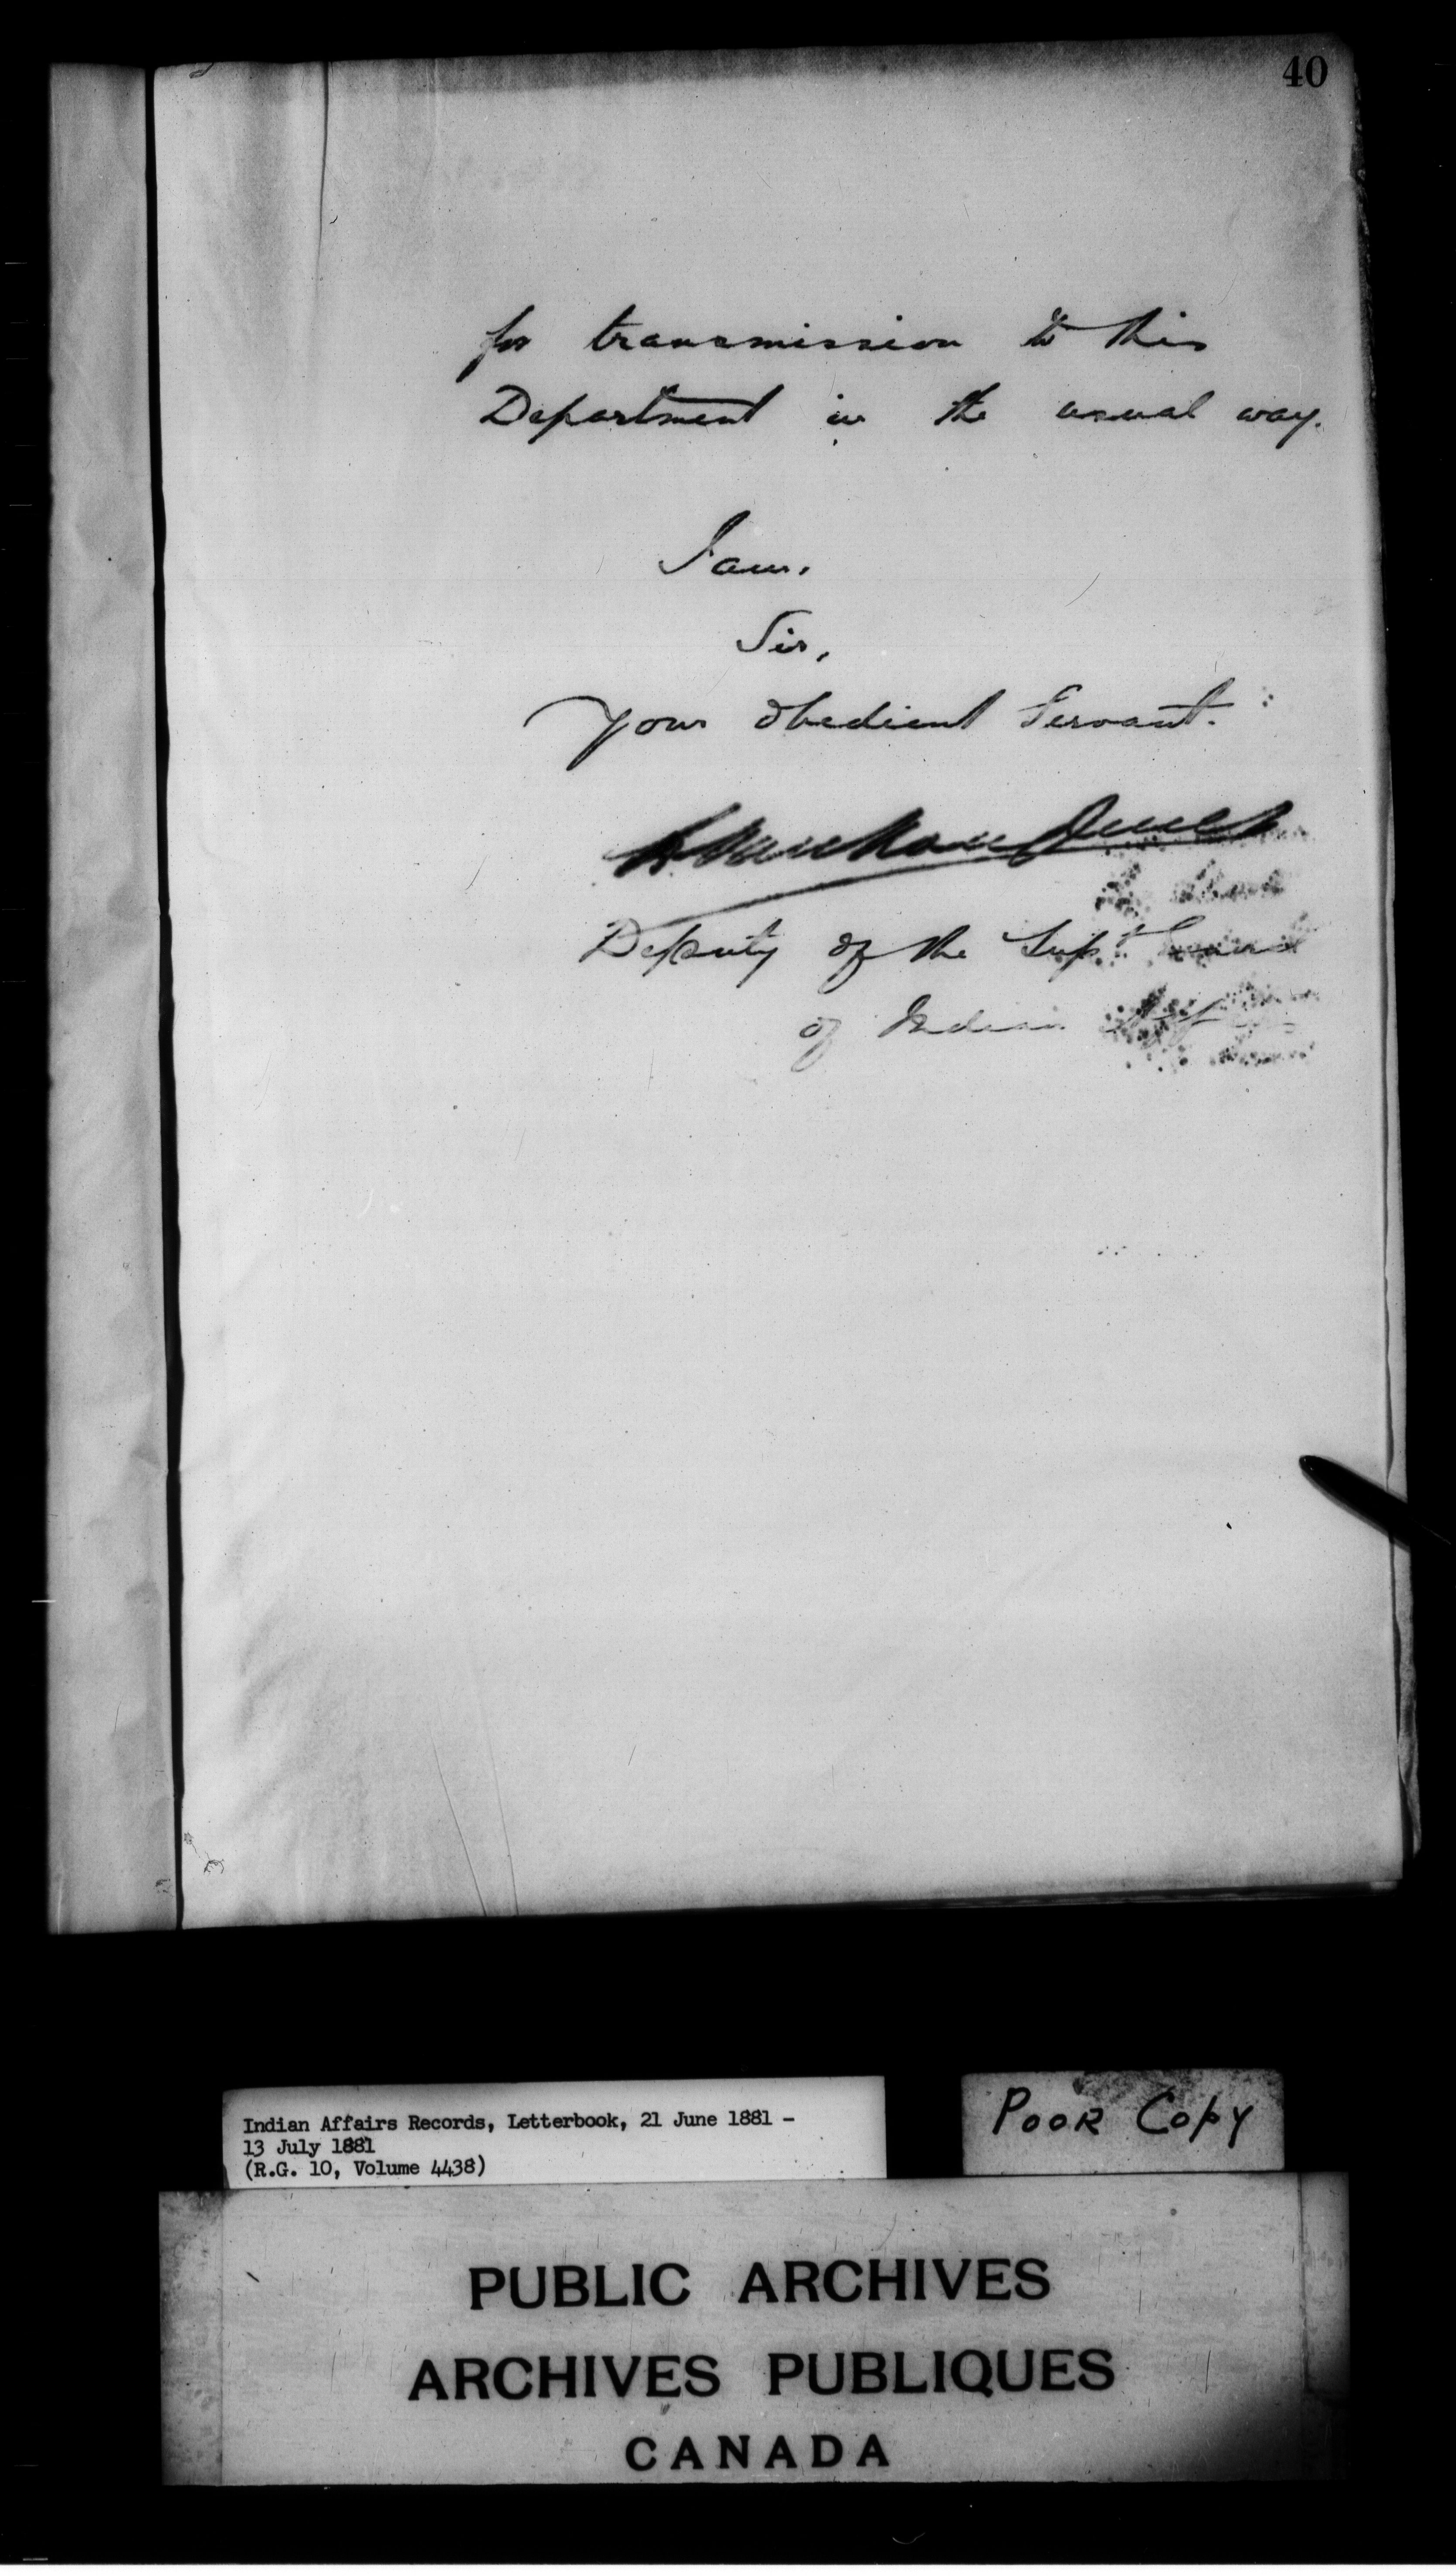 40
for transmission to this
Department in the usual way.
I am,
Sir,
Your obedient Servant.
Deputy of the Supt
of Indian
Indian Affairs Records, Letterbook, 21 June 1881 -
13 July 1881
(R.G. 10, Volume 4438)
POOR COPY
PUBLIC ARCHIVES
ARCHIVES PUBLIQUES
CANADA